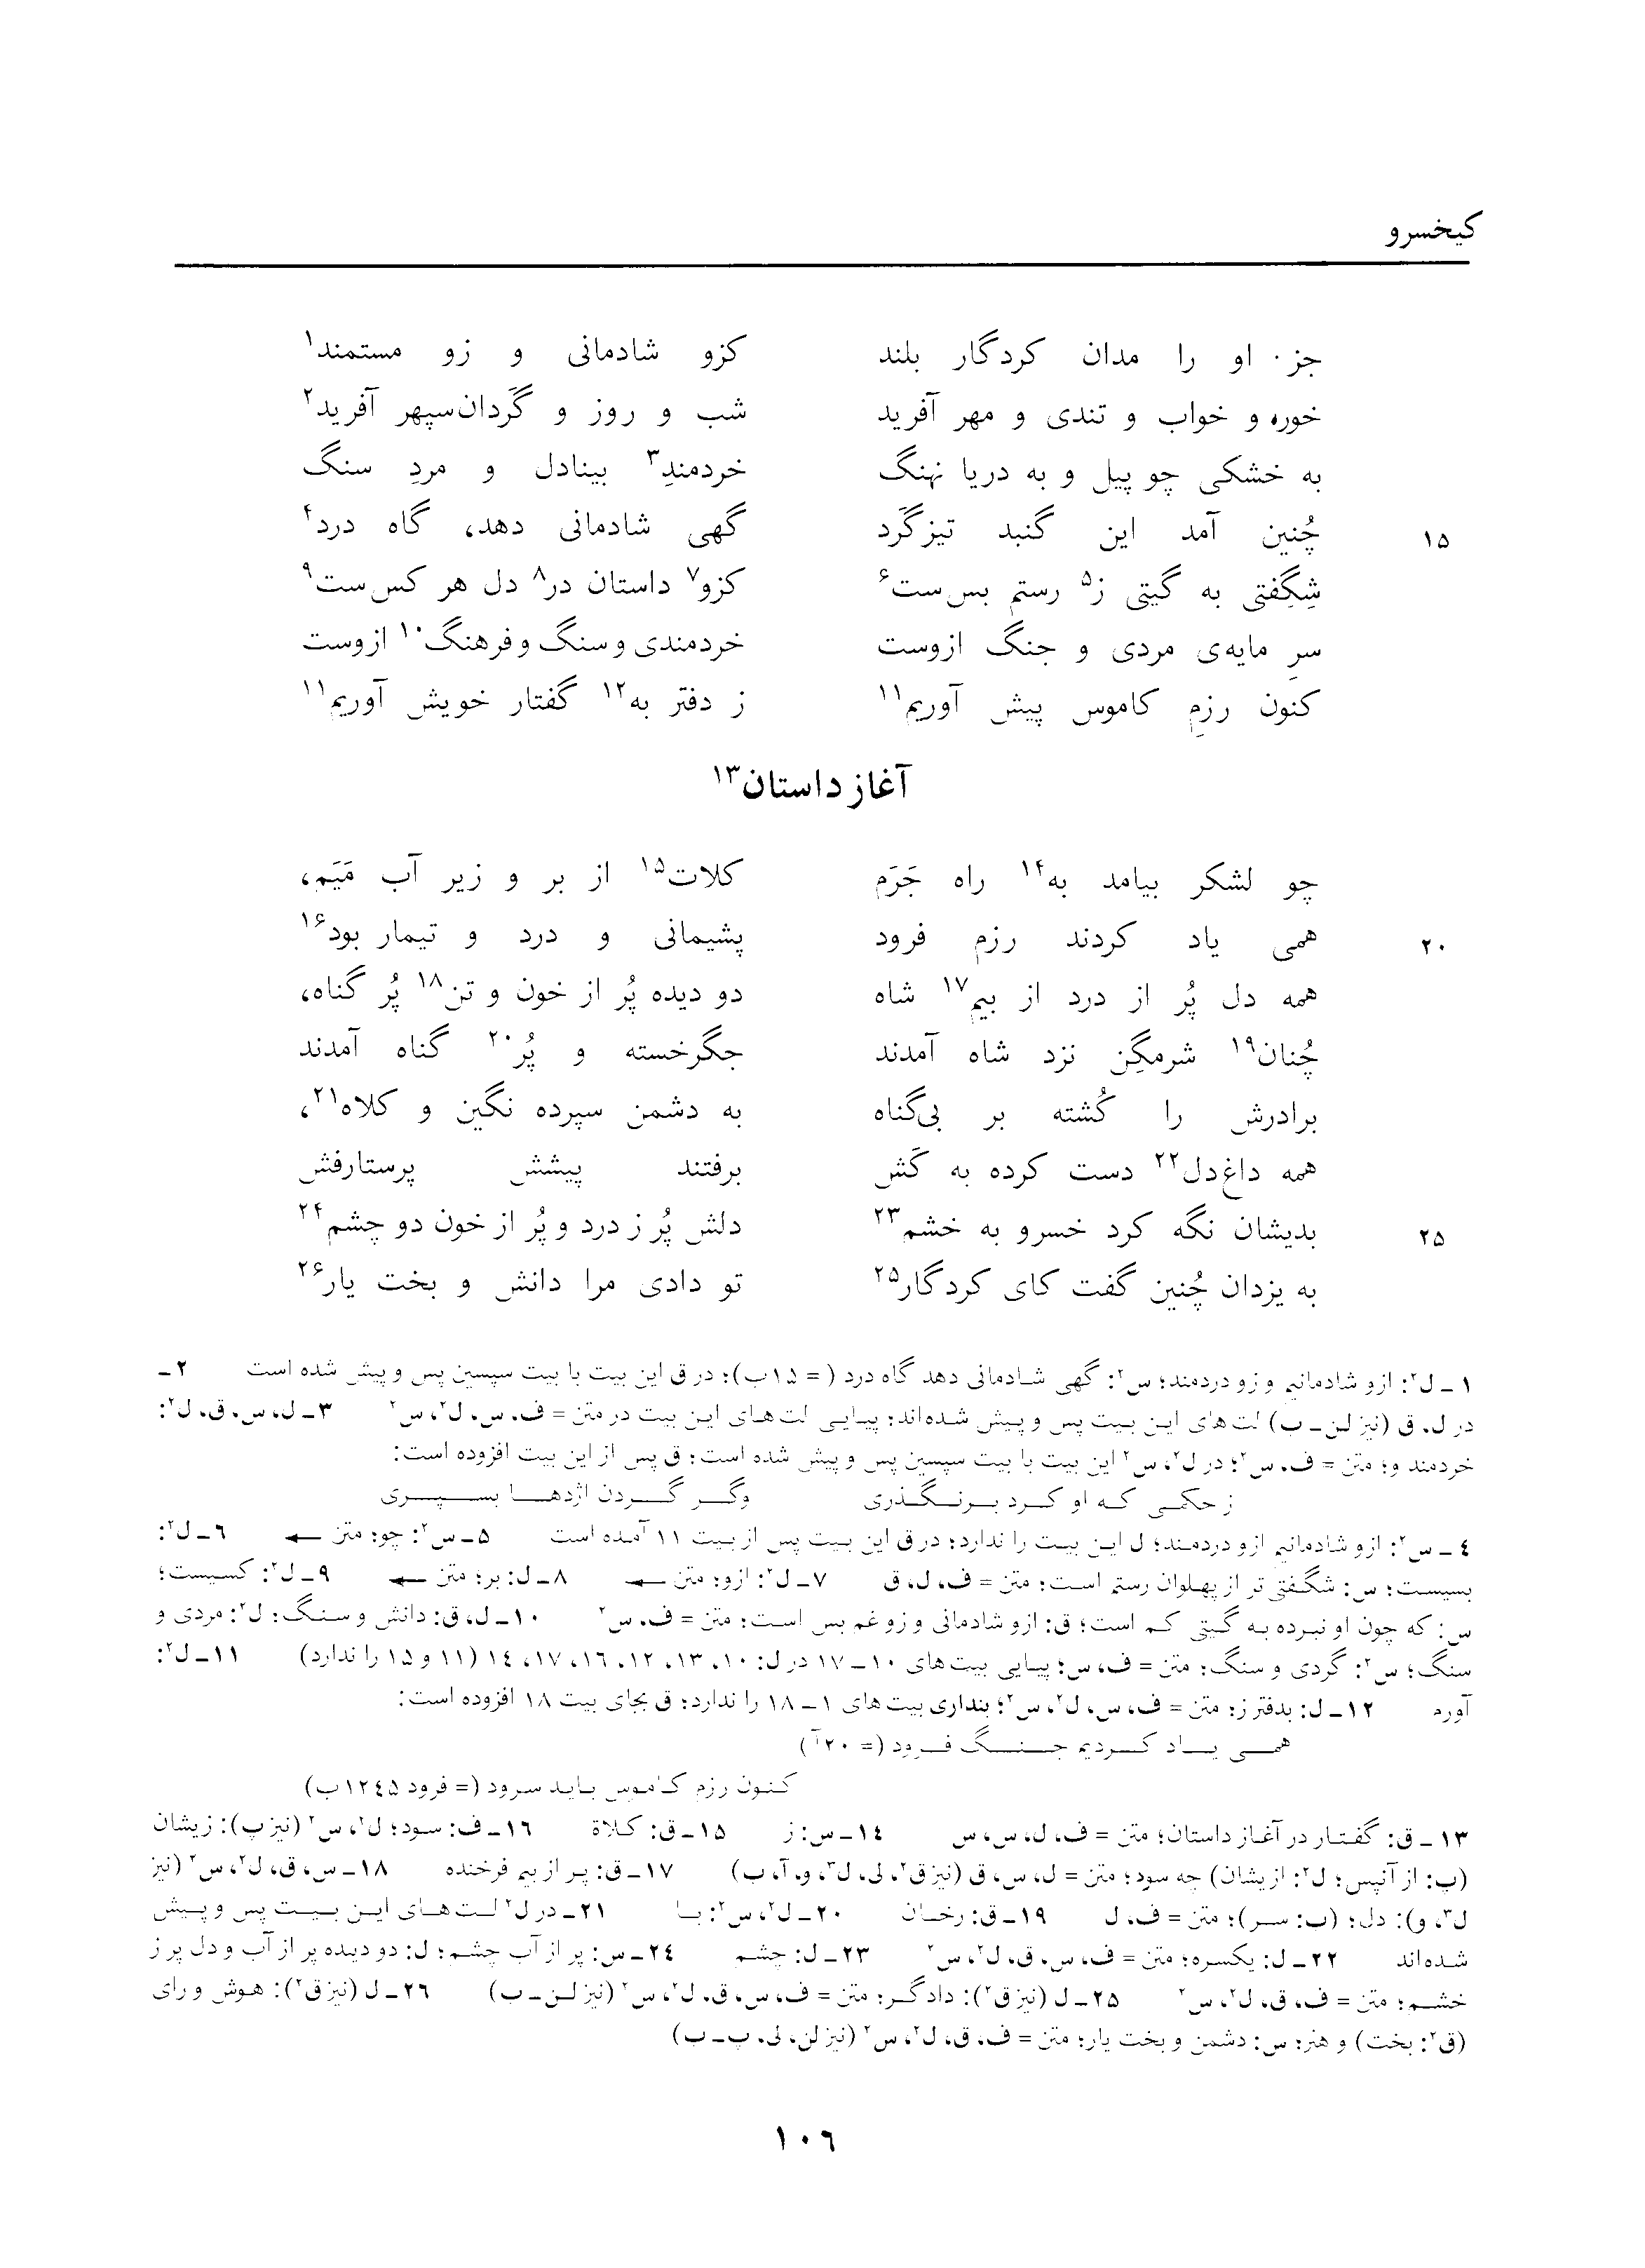 کیخسرو
جز او را مدان کردگار بلند کزو شادمانی و زو مستمند۱
خوره و خواب و تندی و مهر آفرید شب و روز و گَردان‌سپهر آفرید۲
به خشکی چو پیل و به دریا نهنگ خردمندِ۳ بینادل و مردِ سنگ
۱۵ چُنین آمد این گنبد تیزگَرد گهی شادمانی دهد، گاه درد۴
شِگِفتی به گیتی ز۵ رستم بس‌ست۶ کزو۷ داستان در۸ دل هر کس‌ست۹
سرِ مایه‌ی مردی و جنگ ازوست خردمندی و سنگ و فرهنگ۱۰ ازوست
کنون رزمِ کاموس پیش آوریم۱۱ ز دفتر به۱۲ گفتار خویش آوریم۱۱
آغاز داستان۱۳
چو لشکر بیامد به۱۴ راه جَرَم کلات۱۵ از بر و زیر آب مَیَم،
۲۰ همی یاد کردند رزم فرود پشیمانی و درد و تیمار بود۱۶
همه دل پُر از درد از بیم۱۷ شاه دو دیده پُر از خون و تن۱۸ پُر گناه،
چُنان۱۹ شرمگِن نزد شاه آمدند جگرخسته و پُر۲۰ گناه آمدند
برادرش را کُشته بر بی‌گناه به دشمن سپرده نگین و کلاه۲۱،
همه داغ‌دل۲۲ دست کرده به کَش برفتند پیشش پرستارفش
۲۵ بدیشان نگه کرد خسرو به خشم۲۳ دلش پُر ز درد و پُر از خون دو چشم۲۴
به یزدان چُنین گفت کای کردگار۲۵ تو دادی مرا دانش و بخت یار۲۶
۱ـ ل۲: ازو شادمانیم و زو دردمند؛ س۲: گهی شادمانی دهد گاه درد (= ۱۵ب)؛ در ق این بیت با بیت سپسین پس و پیش شده است ۲ـ
در ل، ق (نیز لن ـ ب) لت‌های این بیت پس و پیش شده‌اند؛ پیاپی لت‌های این بیت در متن = ف، س، ل۲، س۲ ۳ـ ل، س، ق، ل۲:
خردمند و؛ متن = ف، س۲؛ در ل۲، س۲ این بیت با بیت سپسین پس و پیش شده است؛ ق پس از این بیت افزوده است:
ز حکمی که او کرد برنگذری وگر گردن اژدها بسپری
۴ـ س۲: ازو شادمانیم ازو دردمند؛ ل این بیت را ندارد؛ در ق این بیت پس از بیت ۱۱ آمده است ۵ـ س۲: چو؛ متن ← ۶ـ ل۲:
بسیست؛ س: شگفتی تر از پهلوان رستم است؛ متن = ف، ل، ق ۷ـ ل۲: ازو؛ متن ← ۸ـ ل: بر؛ متن ← ۹ـ ل۲: کسیست؛
س: که چون او نبرده به گیتی کم است؛ ق: ازو شادمانی و زو غم بس است؛ متن = ف، س۲ ۱۰ـ ل، ق: دانش و سنگ؛ ل۲: مردی و
سنگ؛ س۲: گردی و سنگ؛ متن = ف، س؛ پیاپی بیت‌های ۱۰ ـ ۱۷ در ل: ۱۰، ۱۳، ۱۲، ۱۶، ۱۷، ۱۴ (۱۱ و ۱۵ را ندارد) ۱۱ـ ل۲:
آورم ۱۲ـ ل: بدفتر ز؛ متن = ف، س، ل۲، س۲؛ بنداری بیت‌های ۱ ـ ۱۸ را ندارد؛ ق بجای بیت ۱۸ افزوده است:
همی یاد کردیم جنگ فرود (= ۲۰آ)
کنون رزم کاموس باید سرود (= فرود ۱۲۴۵ب)
۱۳ـ ق: گفتار در آغاز داستان؛ متن = ف، ل، س، س ۱۴ـ س: ز ۱۵ـ ق: کلاة ۱۶ـ ف: سود؛ ل۲، س۲ (نیز پ): زیشان
(ب: از آنپس؛ ل۲: ازیشان) چه سود؛ متن = ل، س، ق (نیز ق۲، لی، ل۳، و، آ، ب) ۱۷ـ ق: پر از بیم فرخنده ۱۸ـ س، ق، ل۲، س۲ (نیز
ل۳، و): دل؛ (ب: سر)؛ متن = ف، ل ۱۹ـ ق: رخان ۲۰ـ ل۲، س۲: با ۲۱ـ در ل۲ لت‌های این بیت پس و پیش
شده‌اند ۲۲ـ ل: یکسره؛ متن = ف، س، ق، ل۲، س۲ ۲۳ـ ل: چشم ۲۴ـ س: پر از آب چشم؛ ل: دو دیده پر از آب و دل پر ز
خشم؛ متن = ف، ق، ل۲، س۲ ۲۵ـ ل (نیز ق۲): دادگر؛ متن = ف، س، ق، ل۲، س۲ (نیز لن ـ ب) ۲۶ـ ل (نیز ق۲): هوش و رای
(ق۲: بخت) و هنر؛ س: دشمن و بخت یار؛ متن = ف، ق، ل۲، س۲ (نیز لن، لی، پ ـ ب)
۱۰۶